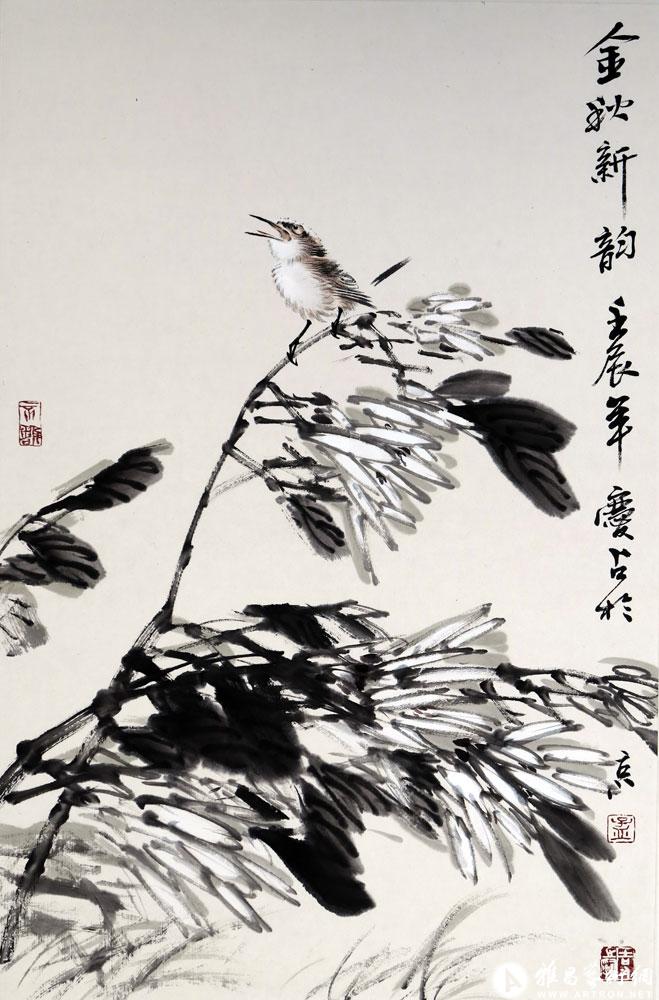 金秋新韵 壬辰年 庆占於
京
雅昌艺术网
WWW.ARTRON.NET